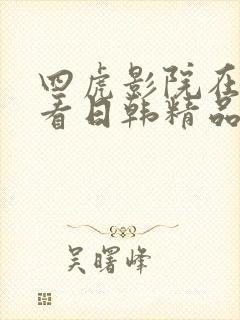 四虎影院在
看日韩精品
吴曙峰